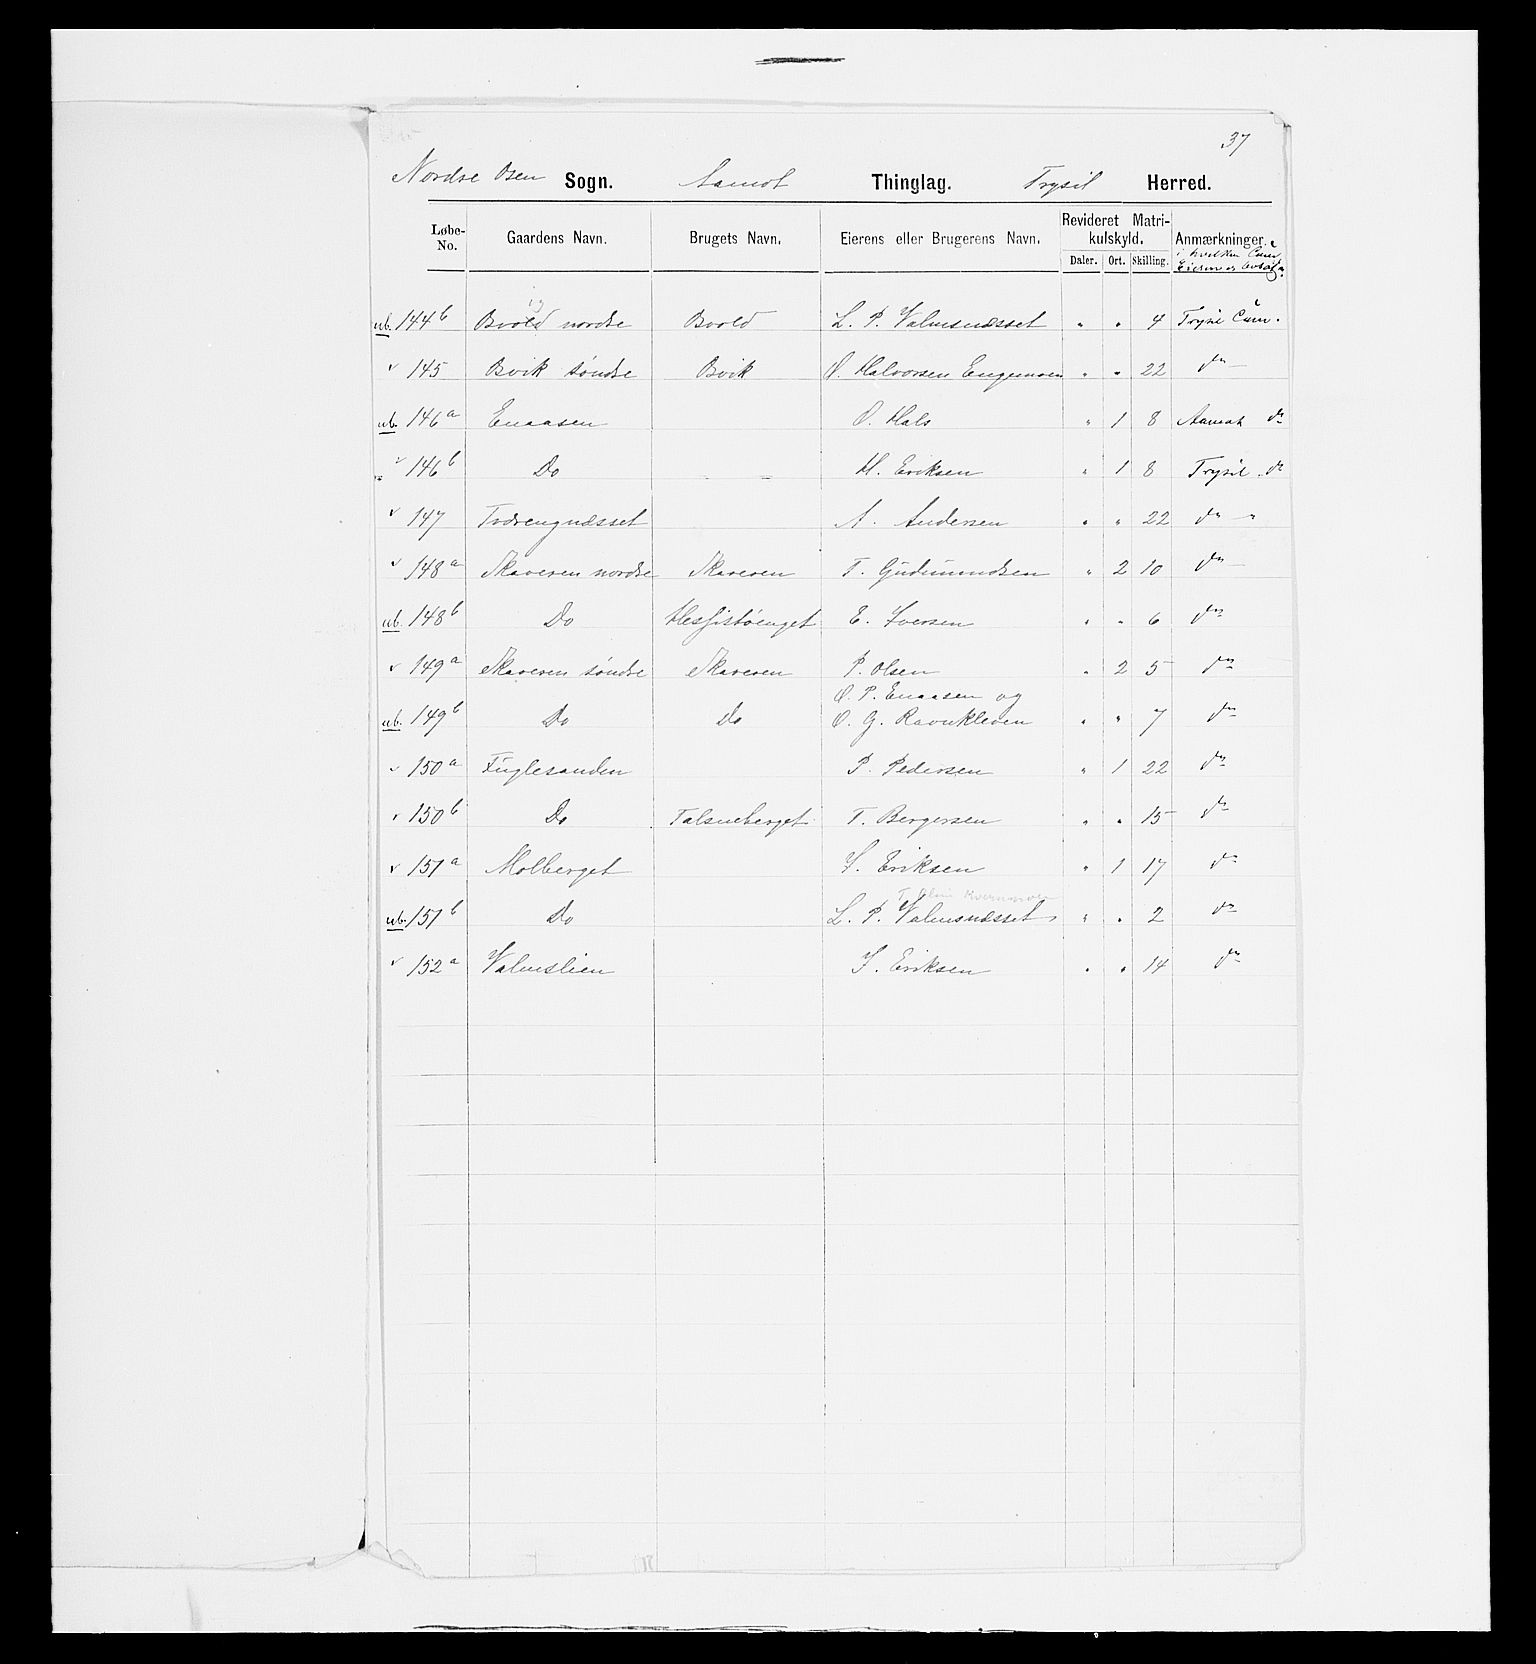 37
Nordre Osen Sogn. Aamot Thinglag. Trysil Herred.
Løbe-No. Gaardens Navn. Brugets Navn. Eierens eller Brugerens Navn. Revideret Matrikulskyld. Daler. Ort. Skilling. Anmærkninger.
i hvilken
Eieren er bosat
ub. 144 b Bvold nordre Bvold L. P. Valmsnæsset " " 4 Trysil Com.
v 145 Bvik søndre Bvik O. Halvorsen Engemoen " " 22 do
ub. 146 a Enaasen O. Hals " 1 8 Aamot do
v 146 b Do H. Eriksen " 1 8 Trysil do
v 147 Tværengnæsset A. Andersen " " 22 do "
v 148 a Skaveren nordre Skaveren T. Gudmundsen " 2 10 do
ub. 148 b Do Hesjistøenget E. Iversen " " 6 do
v 149 a Skaveren søndre Skaveren P. Olsen " 2 5 do
O. P. Enaasen og
ub. 149 b Do Do O. G. Ravnkleven " " 7 do
v 150 a Fuglesanden P. Pedersen " 1 22 do
v 150 b Do Talsneberget T. Bergersen " " 15 do
v 151 a Molberget S. Eriksen " 1 17 do
ub. 151 b Do L. P. Valmsnæsset " " 2 do
v 152 a Valmslien S. Eriksen " " 14 do